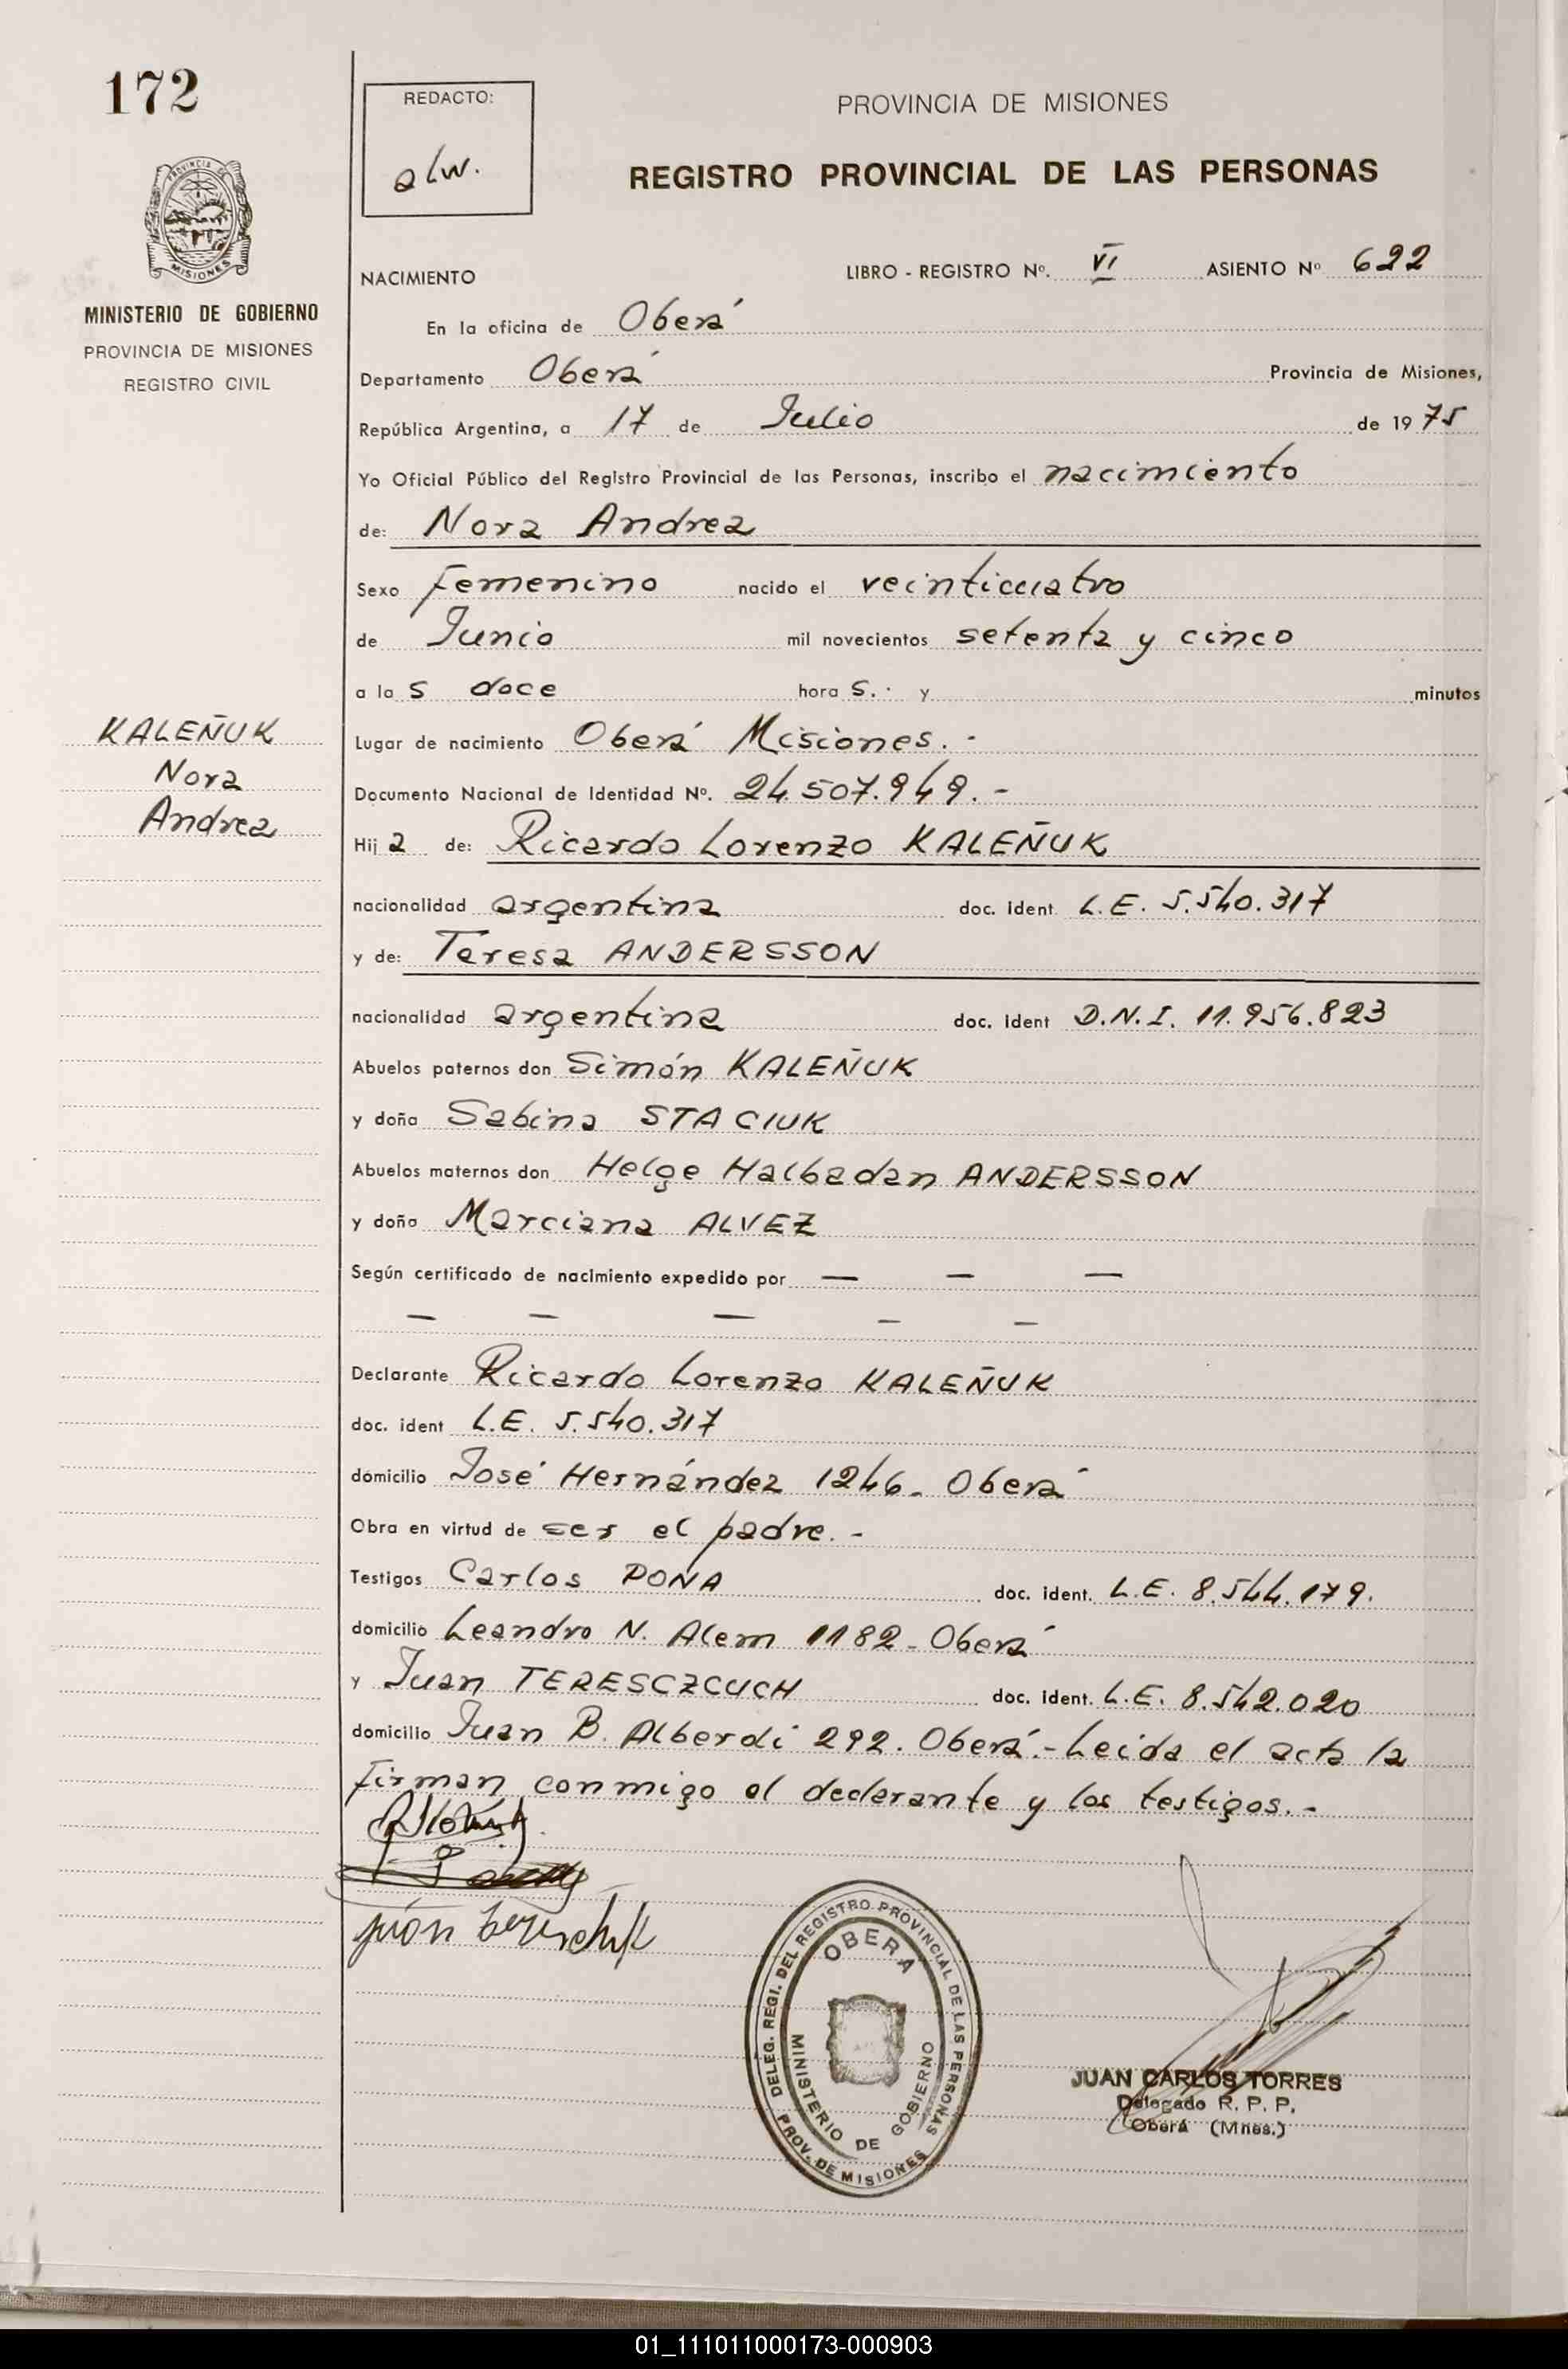 172
REDACTO:
alw.
PROVINCIA DE MISIONES
REGISTRO PROVINCIAL DE LAS PERSONAS
PROVINCIA DE
MISIONES
MINISTERIO DE GOBIERNO
PROVINCIA DE MISIONES
REGISTRO CIVIL
NACIMIENTO LIBRO - REGISTRO Nº. VI ASIENTO Nº 622
En la oficina de Oberá
Departamento Oberá Provincia de Misiones,
República Argentina, a 17 de Julio de 1975
Yo Oficial Público del Registro Provincial de las Personas, inscribo el nacimiento
de: Nora Andrea
Sexo Femenino nacido el veinticuatro
de Junio mil novecientos setenta y cinco
a la s doce hora s.- y minutos
KALEÑUK
Nora
Andrea
Lugar de nacimiento Oberá Misiones.-
Documento Nacional de Identidad Nº. 24.507.949.-
Hij a de: Ricardo Lorenzo KALEÑUK
nacionalidad argentina doc. ident L.E. 5.540.317
y de: Teresa ANDERSSON
nacionalidad argentina doc. ident D.N.I. 11.956.823
Abuelos paternos don Simón KALEÑUK
y doña Sabina STACIUK
Abuelos maternos don Helge Halbadan ANDERSSON
y doña Marciana ALVEZ
Según certificado de nacimiento expedido por — — —
— — — — —
Declarante Ricardo Lorenzo KALEÑUK
doc. ident L.E. 5.540.317
domicilio José Hernández 1246- Oberá
Obra en virtud de ser el padre.-
Testigos Carlos PONA doc. ident. L.E. 8.544.179.
domicilio Leandro N. Alem 1182 - Oberá
y Juan TERESCZCUCH doc. ident. L.E. 8.542.020
domicilio Juan B. Alberdi 292. Oberá.- Leida el acta la
firman conmigo el declarante y los testigos.-
DELEG. REGI. DEL REGISTRO PROVINCIAL DE LAS PERSONAS
PROV. DE MISIONES
OBERA
MINISTERIO DE GOBIERNO
JUAN CARLOS TORRES
Delegado R. P. P.
Oberá (Mnes.)
01_111011000173-000903